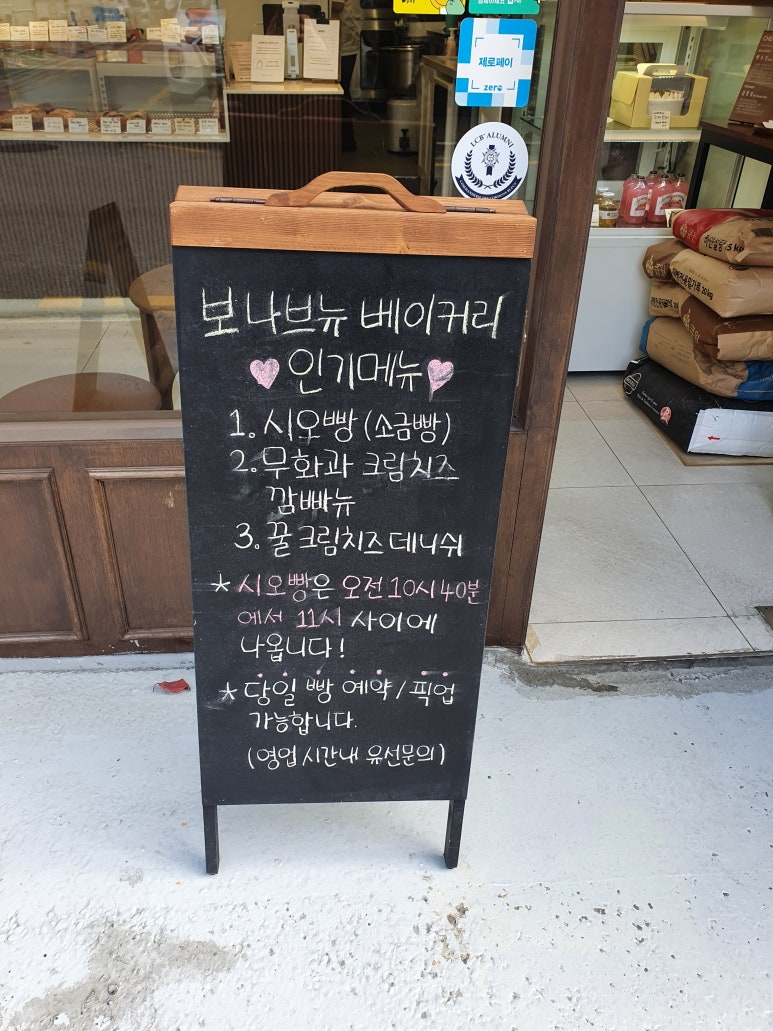 제로페이
zero
LCB ALUMNI
보나브뉴 베이커리
인기메뉴
1. 시오빵 (소금빵)
2. 무화과 크림치즈
깜빠뉴
3. 꿀 크림치즈 데니쉬
* 시오빵은 오전 10시 40분
에서 11시 사이에
나옵니다!
* 당일 빵 예약/픽업
가능합니다.
(영업 시간내 유선문의)